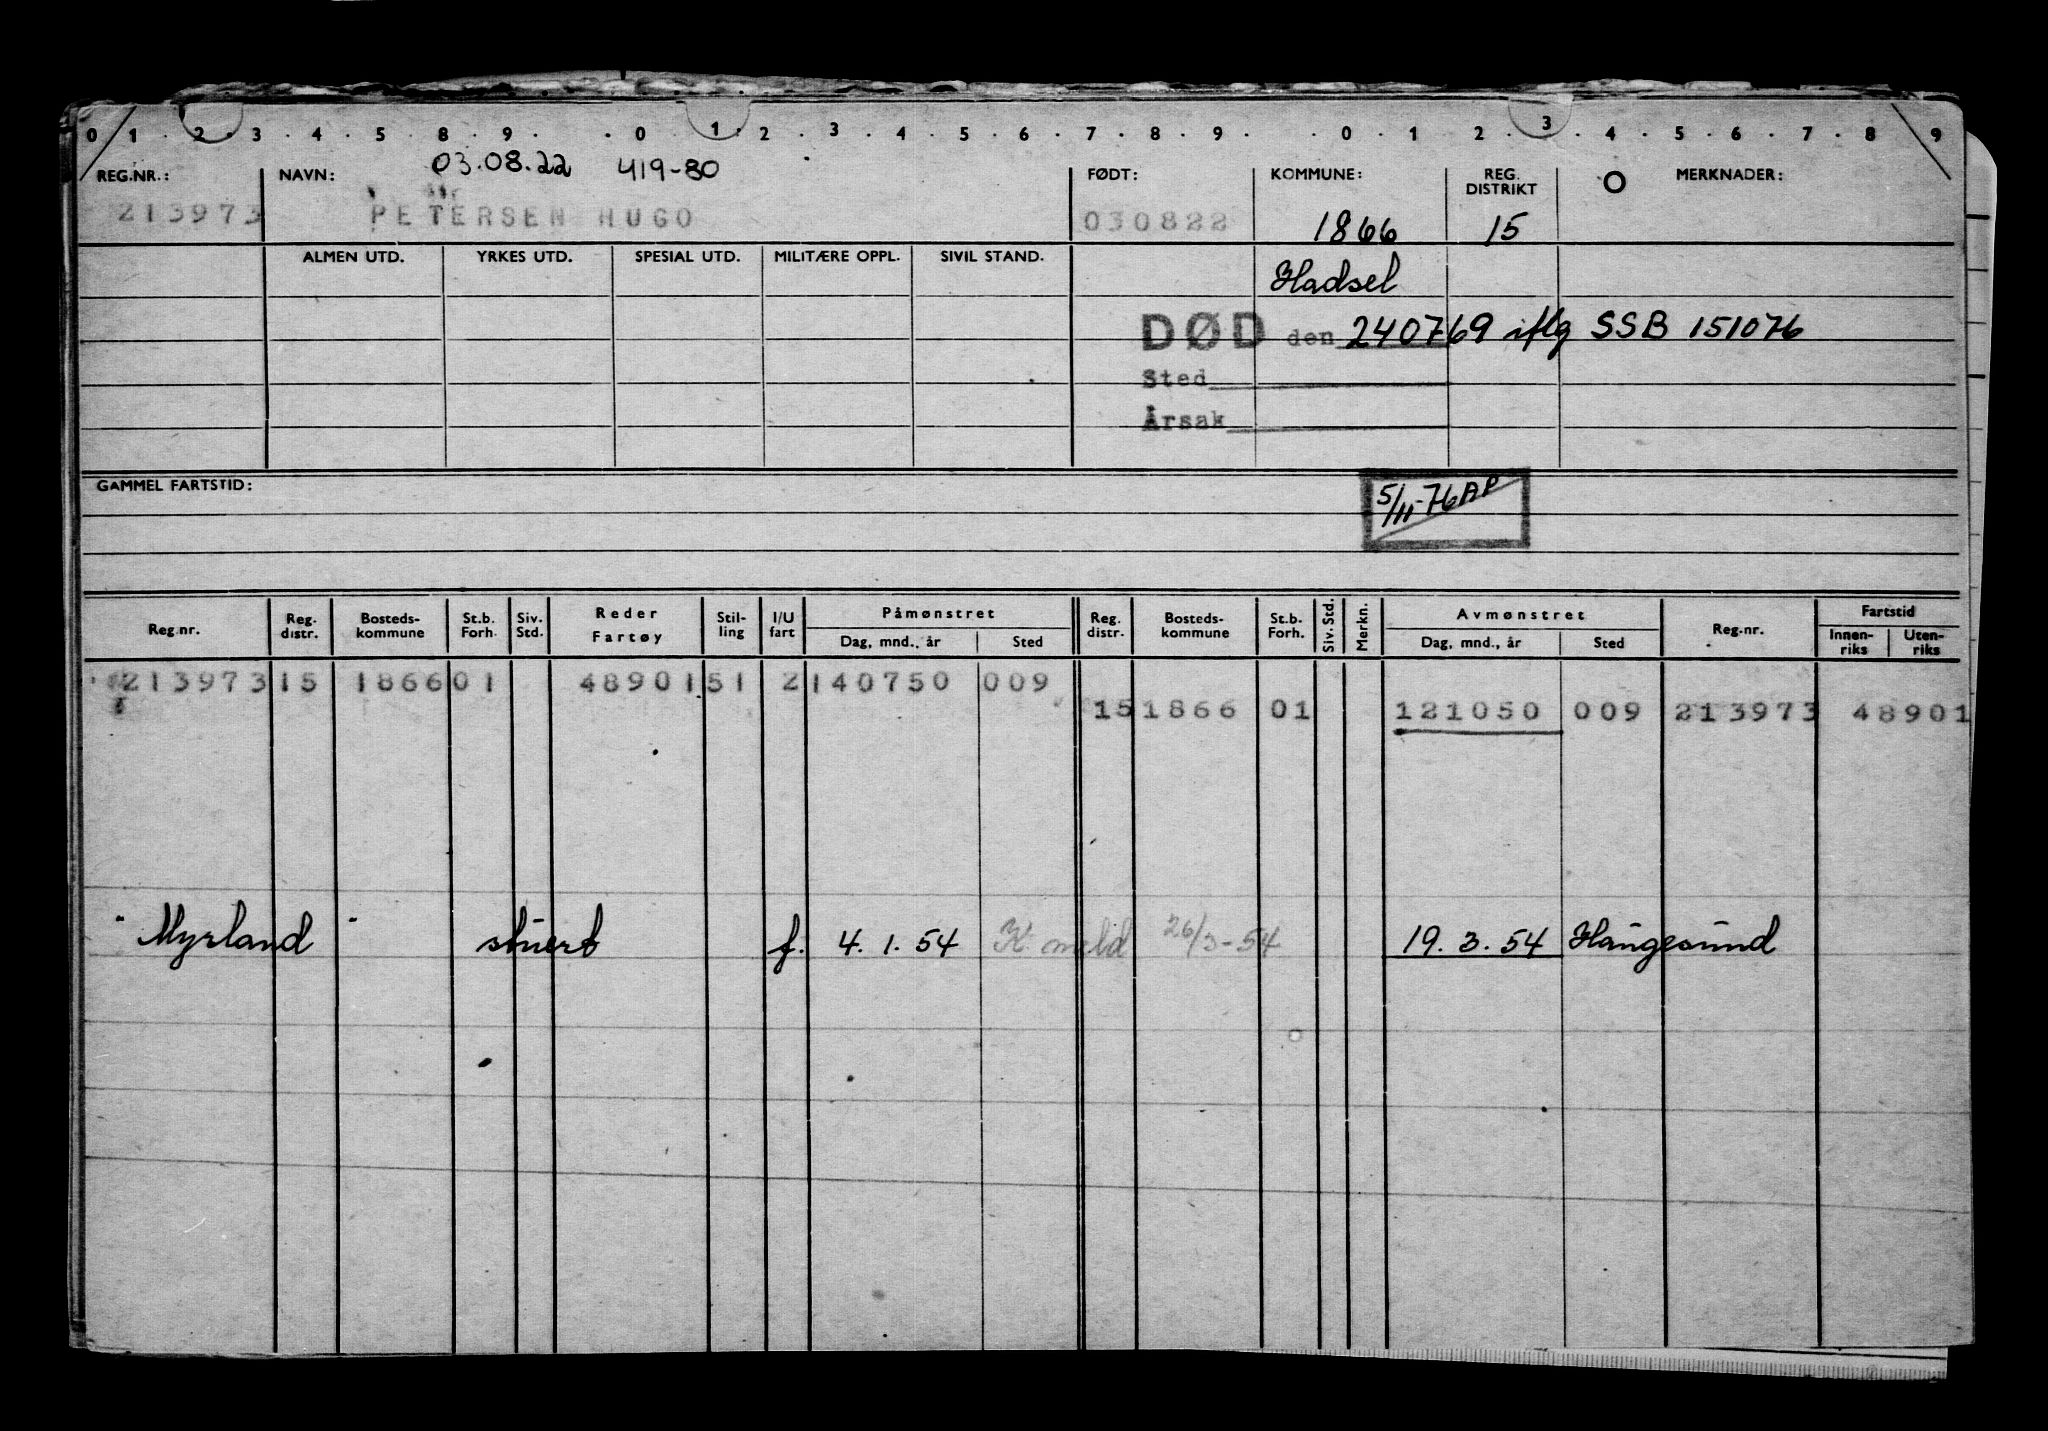 0 1 . 2 . 3 . 4 . 5 . 8 . 9 . . 0 . 1 . 2 . 3 . 4 . 5 . 6 . 7 . 8 . 9 . 0 . 1 . 2 . 3 . 4 . 5 . 6 . 7 . 8 . 9
03.08.22 419-80
REG.NR.: NAVN: FØDT: KOMMUNE: REG. DISTRIKT O MERKNADER:
213973 PETERSEN HUGO 030822 1866 15
ALMEN UTD. YRKES UTD. SPESIAL UTD. MILITÆRE OPPL. SIVIL STAND. Hadsel
DØD den 240769 iflg SSB 151076
Sted
Årsak
GAMMEL FARTSTID: 5/11-76 AP
Reg.nr. Reg. distr. Bosteds-kommune St.b. Forh. Siv. Std. Reder Fartøy Stil-ling I/U fart Påmønstret Reg. distr. Bosteds-kommune St.b. Forh. Siv. Std. Merkn. Avmønstret Reg.-nr. Fartstid
Dag, mnd., år Sted Dag, mnd., år Sted Innen-riks Uten-riks
213973 15 1866 01 48901 51 2 140750 009
15 1866 01 121050 009 213973 48901
"Myrland" stuert f. 4.1.54 K meld 26/3-54 19.3.54 Haugesund